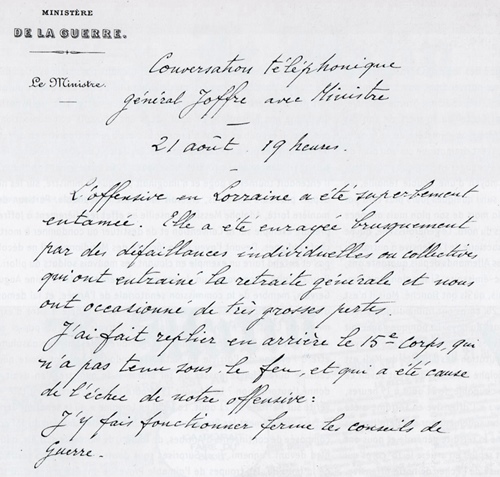 MINISTÈRE
DE LA GUERRE.
Le Ministre.
Conversation téléphonique
général Joffre avec Ministre
21 août. 19 heures.
L'offensive en Lorraine a été superbement
entamée. Elle a été enrayée brusquement
par des défaillances individuelles ou collectives
qui ont entrainé la retraite générale et nous
ont occasionné de très grosses pertes.
J'ai fait replier en arrière le 15e corps, qui
n'a pas tenu sous le feu, et qui a été cause
de l'échec de notre offensive :
J'y fais fonctionner ferme les conseils de
guerre.